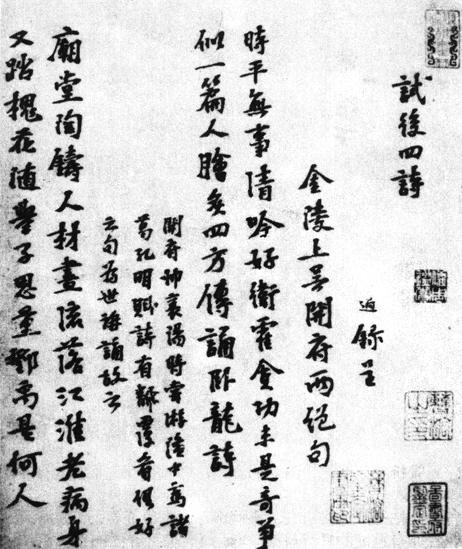 試後四詩
録呈
金陵上吴開府兩絶句
時平無事清吟好衛霍貪功未是奇爭
似一篇人膾炙四方傳誦卧龍詩
開府帥襄陽時嘗游隆中為諸
葛孔明賦詩有覆看俱好
之句為世誦故云
廟堂陶鑄人材盡流落江淮老病身
又踏槐花隨舉子思量鄧禹是何人